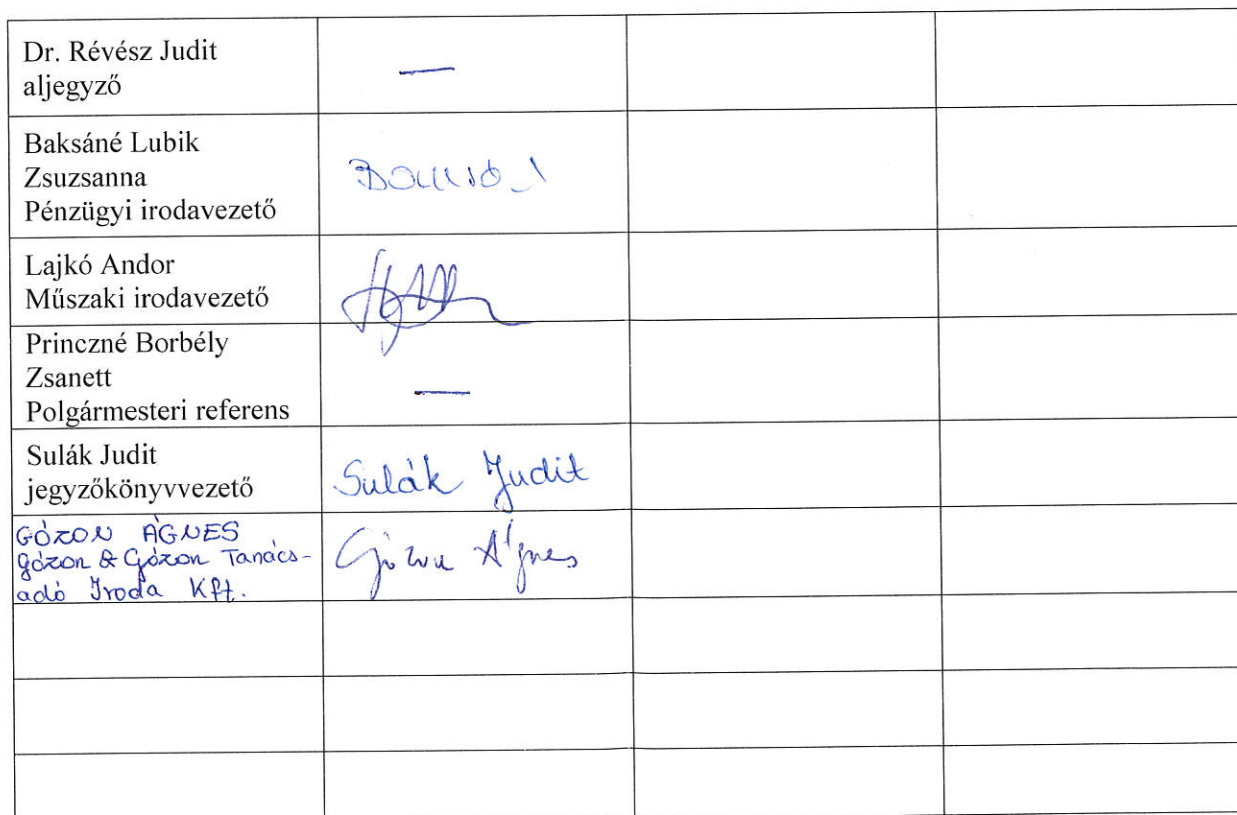 Dr. Révész Judit
aljegyző
—
Baksáné Lubik
Zsuzsanna
Pénzügyi irodavezető
Lajkó Andor
Műszaki irodavezető
Princzné Borbély
Zsanett
Polgármesteri referens
—
Sulák Judit
jegyzőkönyvvezető
Sulák Judit
GÓZON ÁGNES
Gózon & Gózon Tanács-
adó Iroda Kft.
Gózon Ágnes